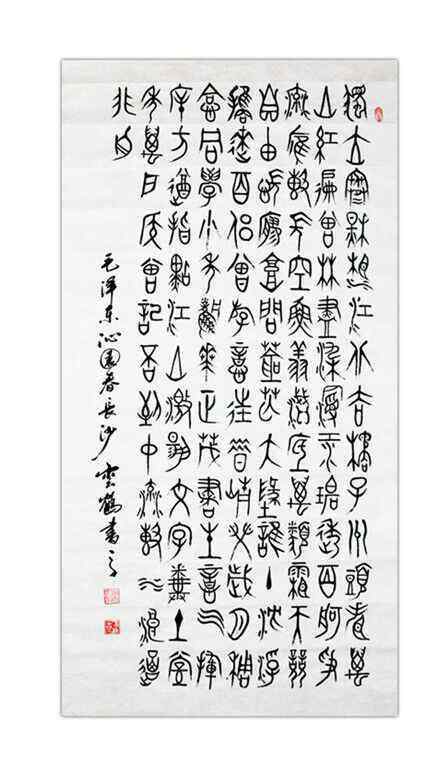 獨立寒秋湘江北去橘子洲頭看萬
山紅遍曾林盡染漫江碧透百舸爭
流鷹擊長空魚翔淺底萬類霜天競
自由悵寥廓問蒼茫大地誰主沉浮
攜來百侶曾游憶往昔崢嶸歲月稠
恰同學少年風華正茂書生意氣揮
斥方遒指點江山激揚文字糞土當
年萬戶侯曾記否到中流擊水浪遏
飛舟
毛泽东沁園春長沙 雲鶴書